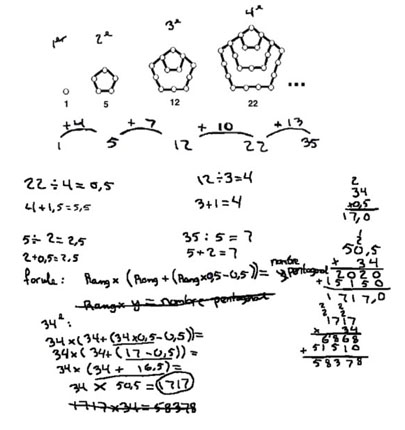 1er 2e 3e 4e
1 5 12 22 ...
+4 +7 +10 +13
1 5 12 22 35
22 ÷ 4 = 0,5
4 + 1,5 = 5,5
12 ÷ 3 = 4
3 + 1 = 4
5 ÷ 2 = 2,5
2 + 0,5 = 2,5
35 : 5 = 7
5 + 2 = 7
forule: Rang x (Rang + (Rang x 0,5 - 0,5)) = nombre pentagonal
Rang x y = nombre pentagonal
34e:
34 x (34 + (34 x 0,5 - 0,5)) =
34 x (34 + (17 - 0,5)) =
34 x (34 + 16,5) =
34 x 50,5 = 1717
1717 x 34 = 58378
2
34
x 0,5
17,0
1
2
50,5
x 34
2020
+ 15150
1717,0
2 2
2 2
1717
x 34
6868
+ 51510
58378